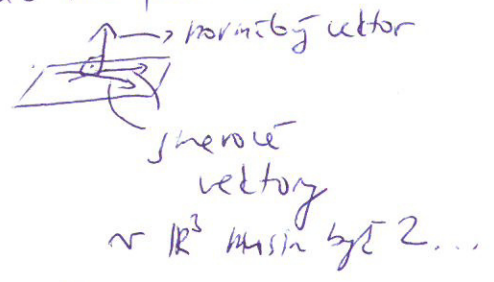 → normálový vektor
smerové
vektory
v ℝ³ musia byť 2...